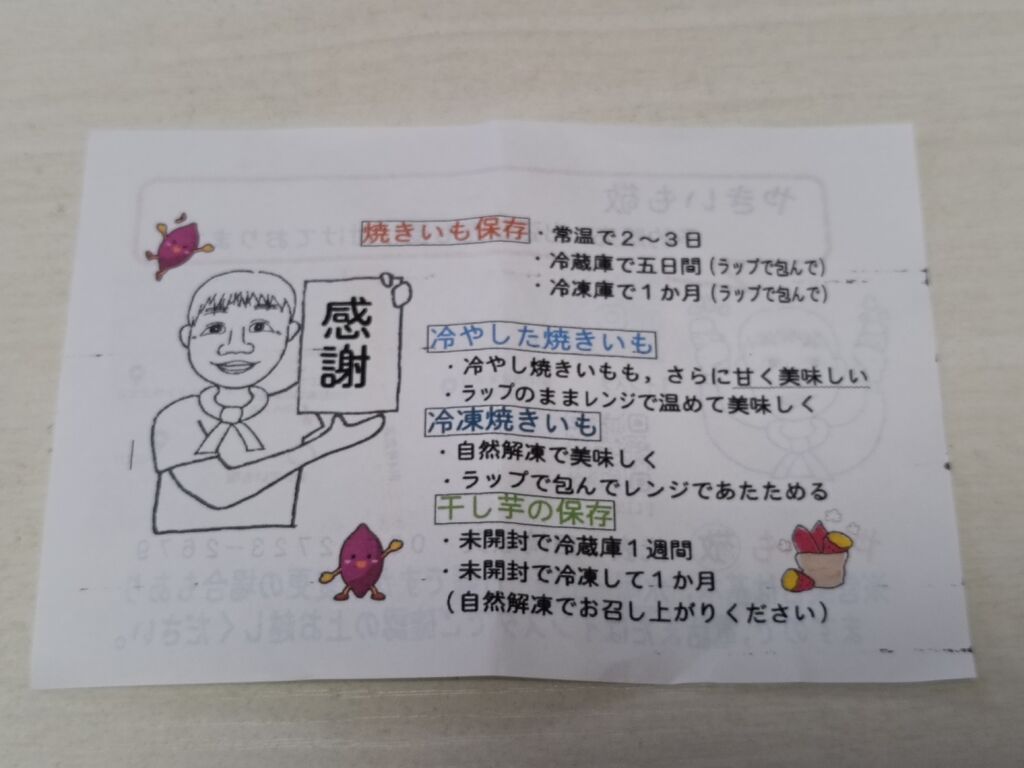 感謝
焼きいも保存・常温で２〜３日
・冷蔵庫で五日間（ラップで包んで）
・冷凍庫で１か月（ラップで包んで）
冷やした焼きいも
・冷やし焼きいもも，さらに甘く美味しい
・ラップのままレンジで温めて美味しく
冷凍焼きいも
・自然解凍で美味しく
・ラップで包んでレンジであたためる
干し芋の保存
・未開封で冷蔵庫１週間
・未開封で冷凍して１か月
（自然解凍でお召し上がりください）
やきいも敬